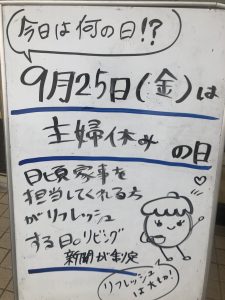 今日は何の日!?
9月25日(金)は
主婦休み
の日
日頃家事を
担当してくれる方
がリフレッシュ
する日。リビング
新聞が制定
リフレッシュ
は大切!